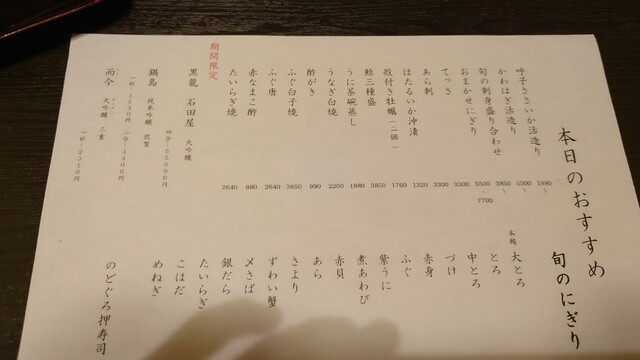 本日のおすすめ
呼子ささいか活造り 1980~
かわはぎ活造り 5500
旬の刺身盛り合わせ 3850~
おまかせにぎり 5500~7700
てっさ 3300
あら刺 3300
ほたるいか沖漬 1320
殻付き牡蠣(二個) 1760
鯨三種盛 3850
うに茶碗蒸し 1980
うなぎ白焼 2200
酢がき 990
ふぐ白子焼 3850
ふぐ唐 2640
赤なまこ酢 880
たいらぎ焼 2640
期間限定
黒龍 石田屋 大吟醸
四合─55000円
鍋島 純米吟醸 佐賀
二合─4400円
一杯─1540円
而今 大吟醸 三重
一杯─2310円
旬のにぎり
本鮪
大とろ
とろ
中とろ
づけ
赤身
ふぐ
紫うに
煮あわび
赤貝
あら
さより
ずわい蟹
〆さば
銀だら
たいらぎ
こはだ
めねぎ
のどぐろ押寿司